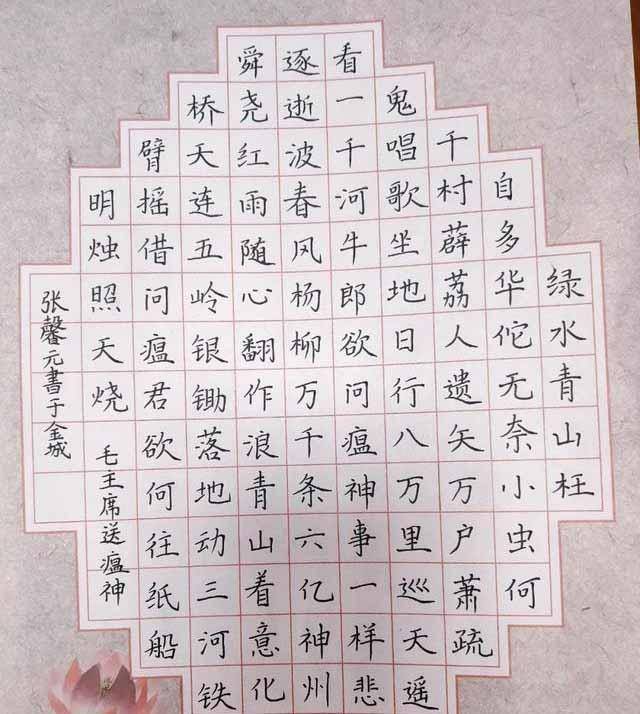 绿水青山枉
自多华佗无奈小虫何
千村薜荔人遗矢万户萧疏
鬼唱歌坐地日行八万里巡天遥
看一千河牛郎欲问瘟神事一样悲
逐逝波春风杨柳万千条六亿神州
舜尧红雨随心翻作浪青山着意化
桥天连五岭银锄落地动三河铁
臂摇借问瘟君欲何往纸船
明烛照天烧 毛主席送瘟神
张馨元書于金城